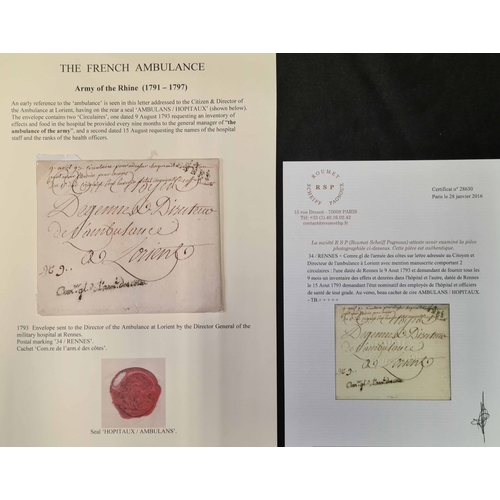 THE FRENCH AMBULANCE
Army of the Rhine (1791 – 1797)
An early reference to the 'ambulance' is seen in this letter addressed to the Citizen & Director of
the Ambulance at Lorient, having on the rear a seal 'AMBULANS / HOPITAUX' (shown below).
The envelope contains two 'Circulaires', one dated 9 August 1793 requesting an inventory of
effects and food in the hospital be provided every nine months to the general manager of "the
ambulance of the army", and a second dated 15 August requesting the names of the hospital
staff and the ranks of the health officers.
Directeur
de l'ambulance
Lorient
1793 Envelope sent to the Director of the Ambulance at Lorient by the Director General of the
military hospital at Rennes.
Postal marking '34 / RENNES'.
Cachet 'Com.re de l'arm.é des côtes'.
Seal 'HOPITAUX / AMBULANS'.
ROUMET
RSP
SCHEIFF
POGNOUX
15 rue Drouot - 75009 PARIS
Certificat n° 28630
Paris le 28 janvier 2016
La société R S P (Roumet Scheiff Pognoux) atteste avoir examiné la pièce
photographiée ci-dessous. Cette pièce est authentique.
34 / RENNES + Comm.gl de l'armée des côtes sur lettre adressée au Citoyen et
Directeur de l'ambulance à Lorient avec mention manuscrite comportant 2
circulaires : l'une datée de Rennes le 9 Aout 1793 et demandant de fournir tous les
9 mois un inventaire des effets et denrées dans l'hôpital et l'autre, datée de Rennes
le 15 Aout 1793 demandant l'état nominatif des employés de l'hôpital et officiers
de santé de tout grade. Au verso, beau cachet de cire AMBULANS / HOPITAUX.
- TB -
Directeur
de l'ambulance
Lorient